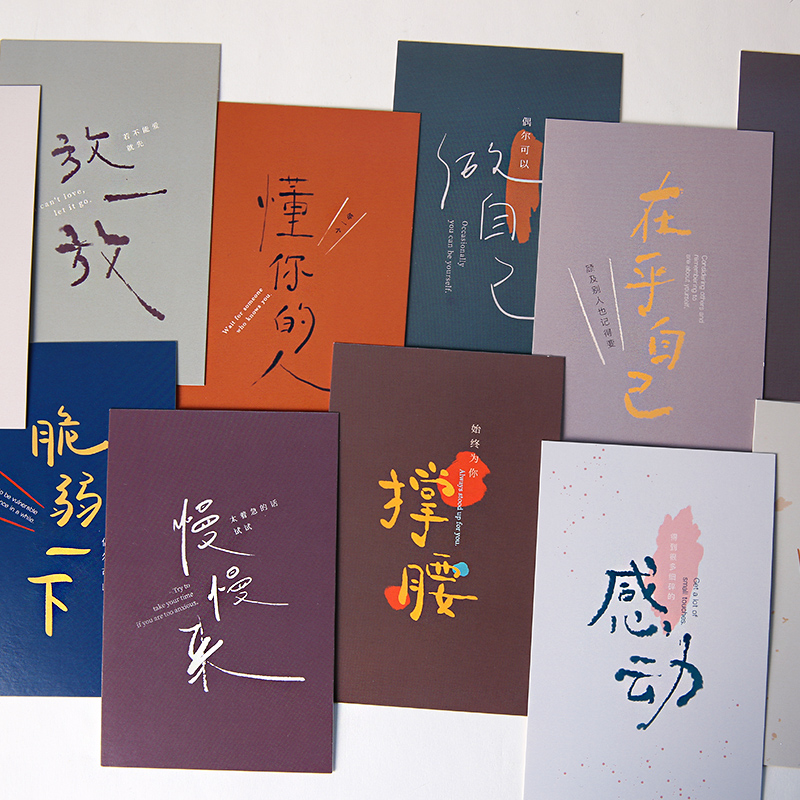 若不能爱
就先
放一放
can't love,
let it go.
懂你的人
Wait for someone
who knows you.
偶尔可以
做自己
Occasionally
you can be yourself.
在乎自己
顾及别人也记得要
Considering others and
remembering to
care about yourself.
脆弱一下
be vulnerable
in a while.
太着急的话
试试
慢慢来
Try to
take your time
if you are too anxious.
始终为你
撑腰
Always stood up for you.
感动
Get a lot of
small touches.